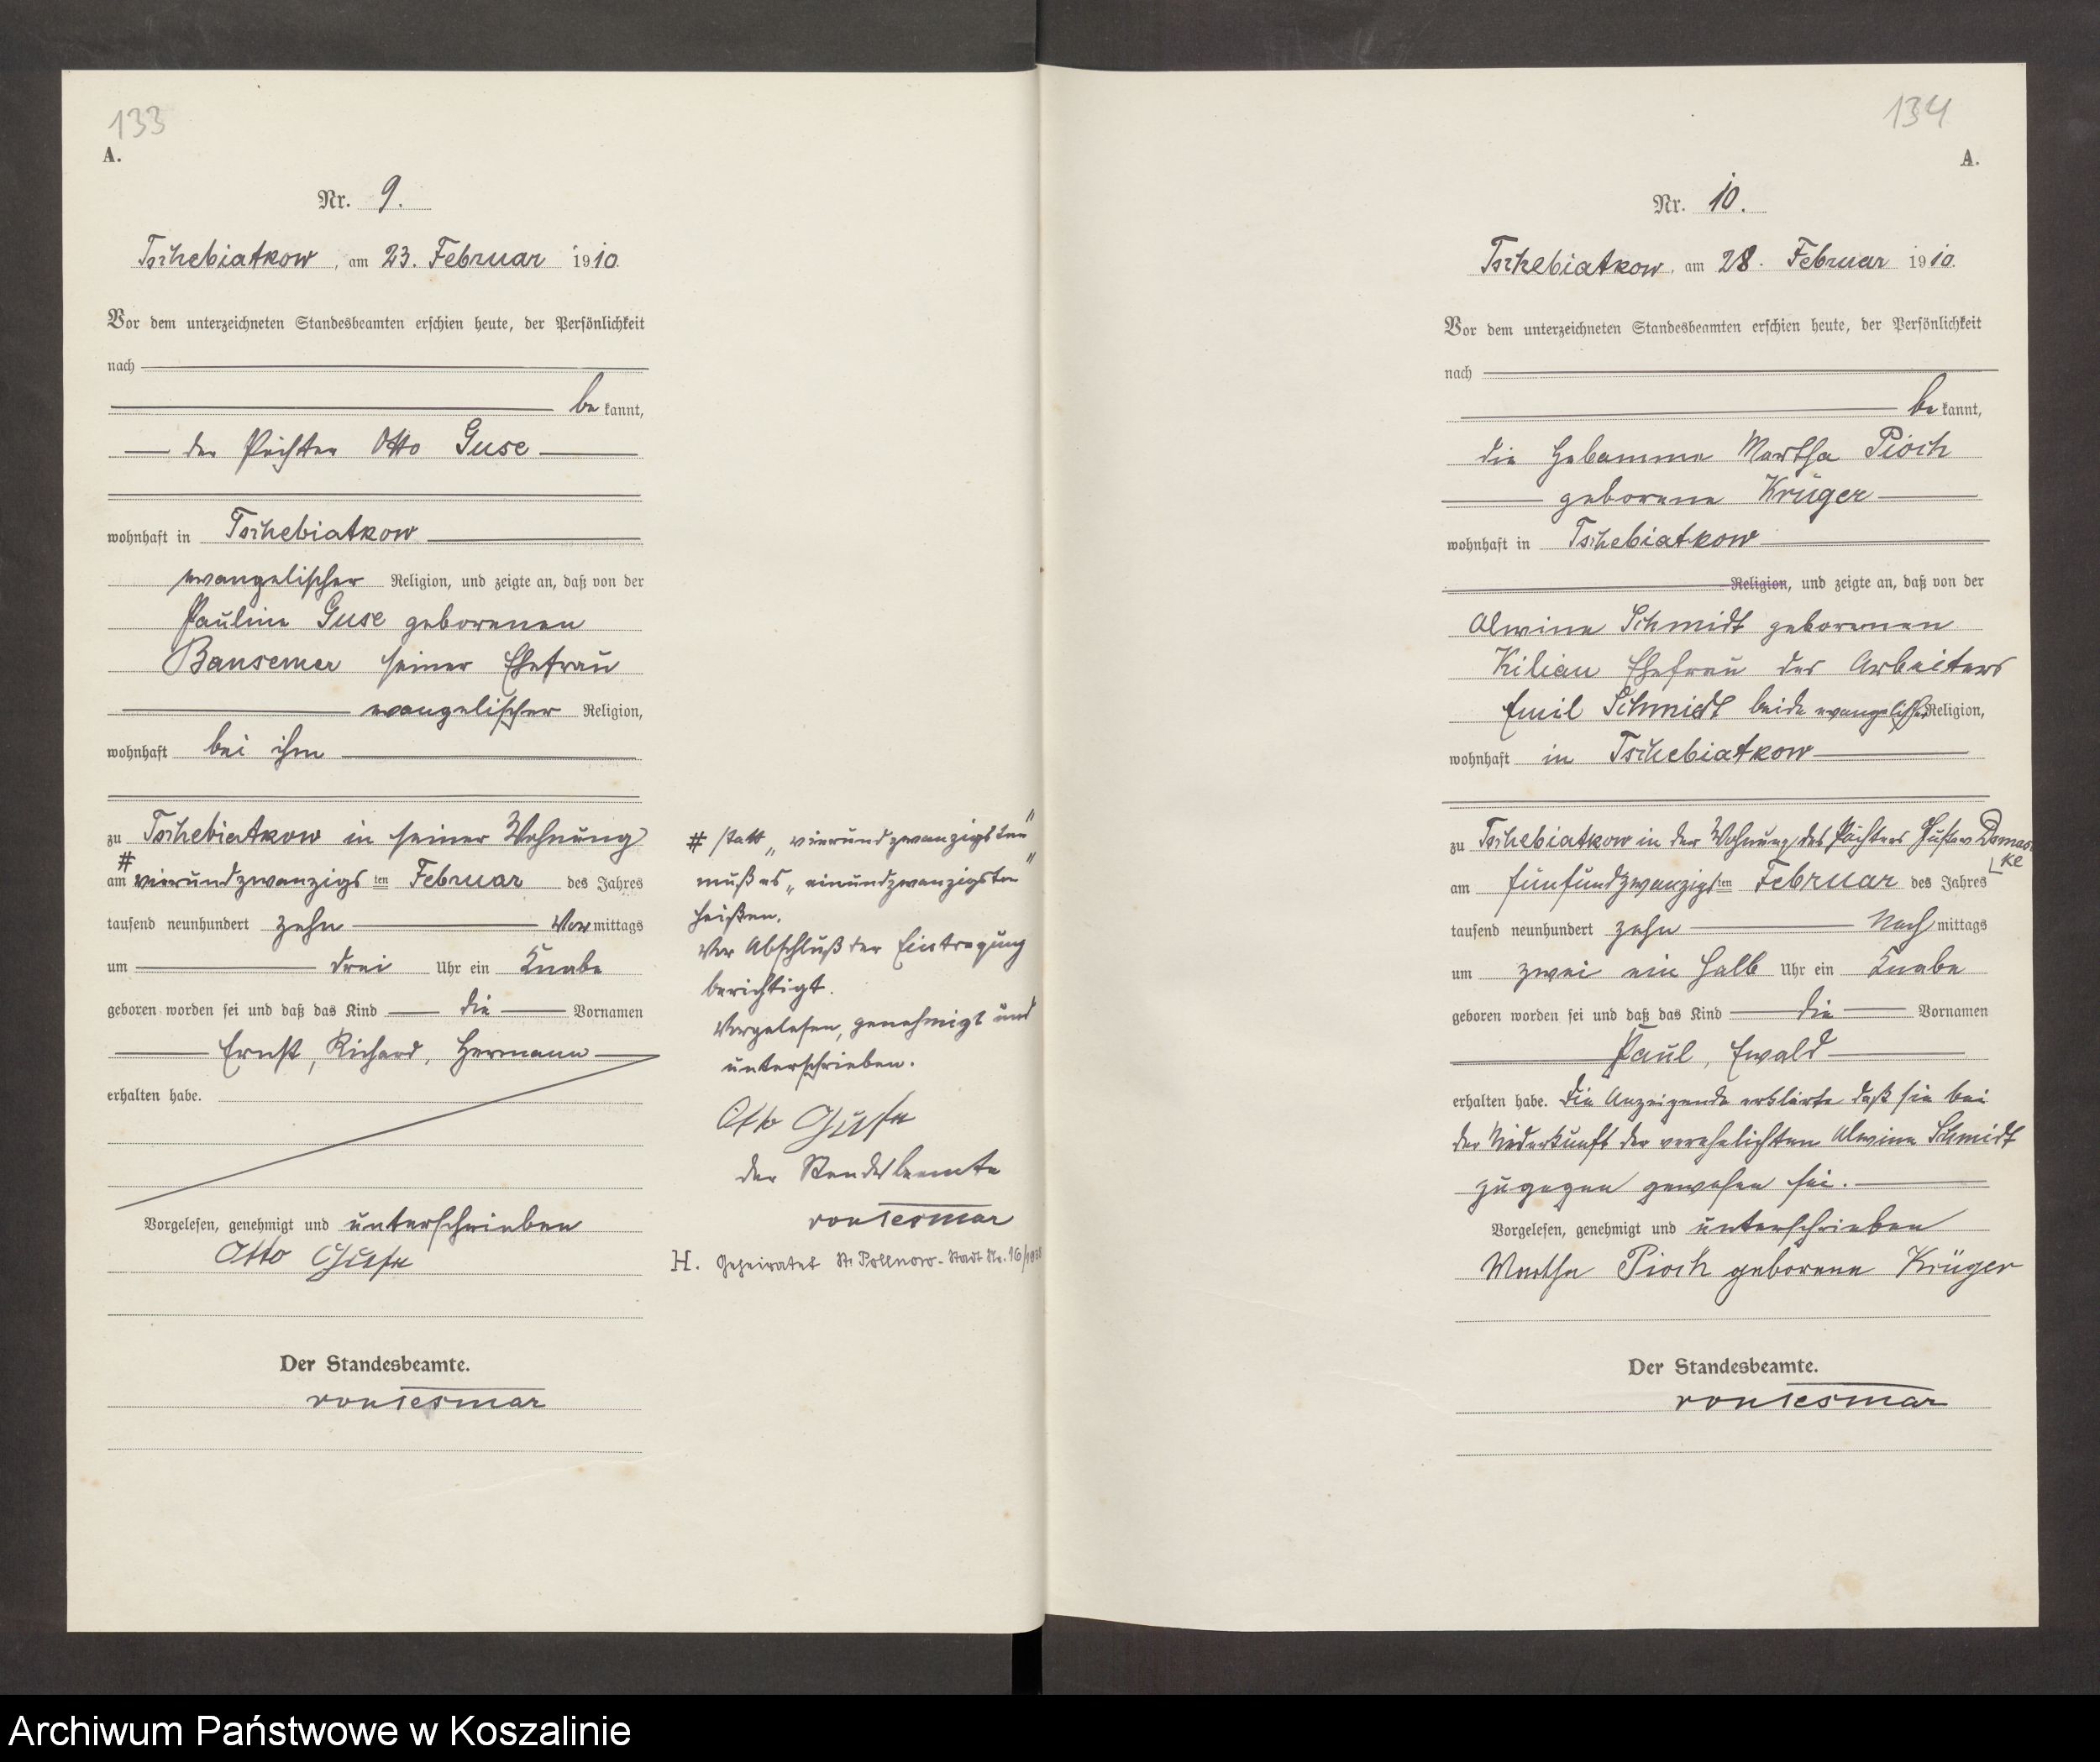 133
A.
Nr. 9.
Tschebiatkow, am 23. Februar 1910.
Vor dem unterzeichneten Standesbeamten erschien heute, der Persönlichkeit
nach
bekannt,
der Pächter Otto Guse
wohnhaft in Tschebiatkow
evangelischer Religion, und zeigte an, daß von der
Pauline Guse geborenen
Bansemer seiner Ehefrau
evangelischer Religion,
wohnhaft bei ihm
zu Tschebiatkow in seiner Wohnung
#
am vierundzwanzigsten Februar des Jahres
tausend neunhundert zehn Vormittags
um drei Uhr ein Knabe
geboren worden sei und daß das Kind die Vornamen
Ernst, Richard, Hermann
erhalten habe.
Vorgelesen, genehmigt und unterschrieben
Otto Guse
Der Standesbeamte.
von Tesmar
# statt „vierundzwanzigsten"
muß es „einundzwanzigsten"
heißen.
Vor Abschluß der Eintragung
berichtigt.
Vorgelesen, genehmigt und
unterschrieben.
Otto Guse
der Standesbeamte
von Tesmar
H. Geheiratet St. Pollnow-Stadt Nr. 16/1938
134
A.
Nr. 10.
Tschebiatkow, am 28. Februar 1910.
Vor dem unterzeichneten Standesbeamten erschien heute, der Persönlichkeit
nach
bekannt,
die Hebamme Martha Pioch
geborene Krüger
wohnhaft in Tschebiatkow
Religion, und zeigte an, daß von der
Alwine Schmidt geborenen
Kilian Ehefrau des Arbeiters
Emil Schmidt beide evangelischer Religion,
wohnhaft in Tschebiatkow
zu Tschebiatkow in der Wohnung des Pächters Gustav Domas
ke
am fünfundzwanzigsten Februar des Jahres
tausend neunhundert zehn Nachmittags
um zwei ein halb Uhr ein Knabe
geboren worden sei und daß das Kind die Vornamen
Paul, Ewald
erhalten habe. Die Anzeigende erklärte daß sie bei
der Niederkunft der verehelichten Alwine Schmidt
zugegen gewesen sei.
Vorgelesen, genehmigt und unterschrieben
Martha Pioch geborene Krüger
Der Standesbeamte.
von Tesmar
Archiwum Państwowe w Koszalinie